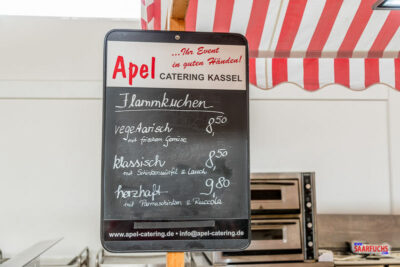 ...Ihr Event
in guten Händen!
Apel
CATERING KASSEL
Flammkuchen
vegetarisch 8,50
mit frischem Gemüse
klassisch 8,50
mit Schinkenwürfel & Lauch
herzhaft 9,80
mit Parmaschinken & Ruccola
www.apel-catering.de • info@apel-catering.de
SAARFUCHS